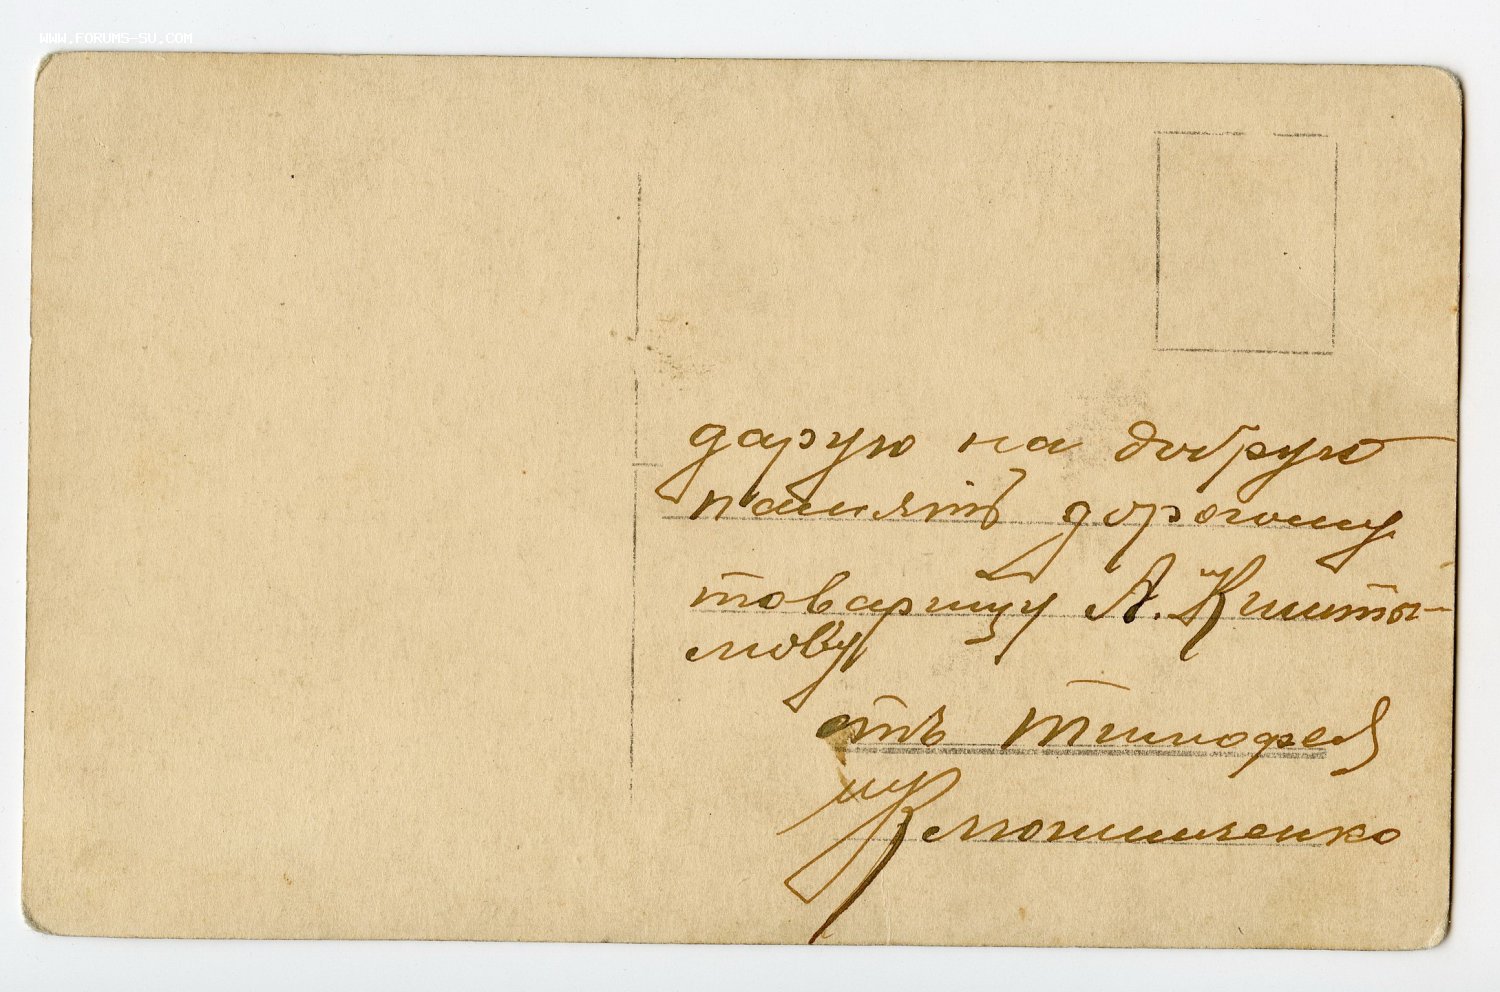 WWW.FORUMS-SU.COM
дарую на добрую
память дорогому
товарищу А. Кишты-
мову
отъ Тимофея